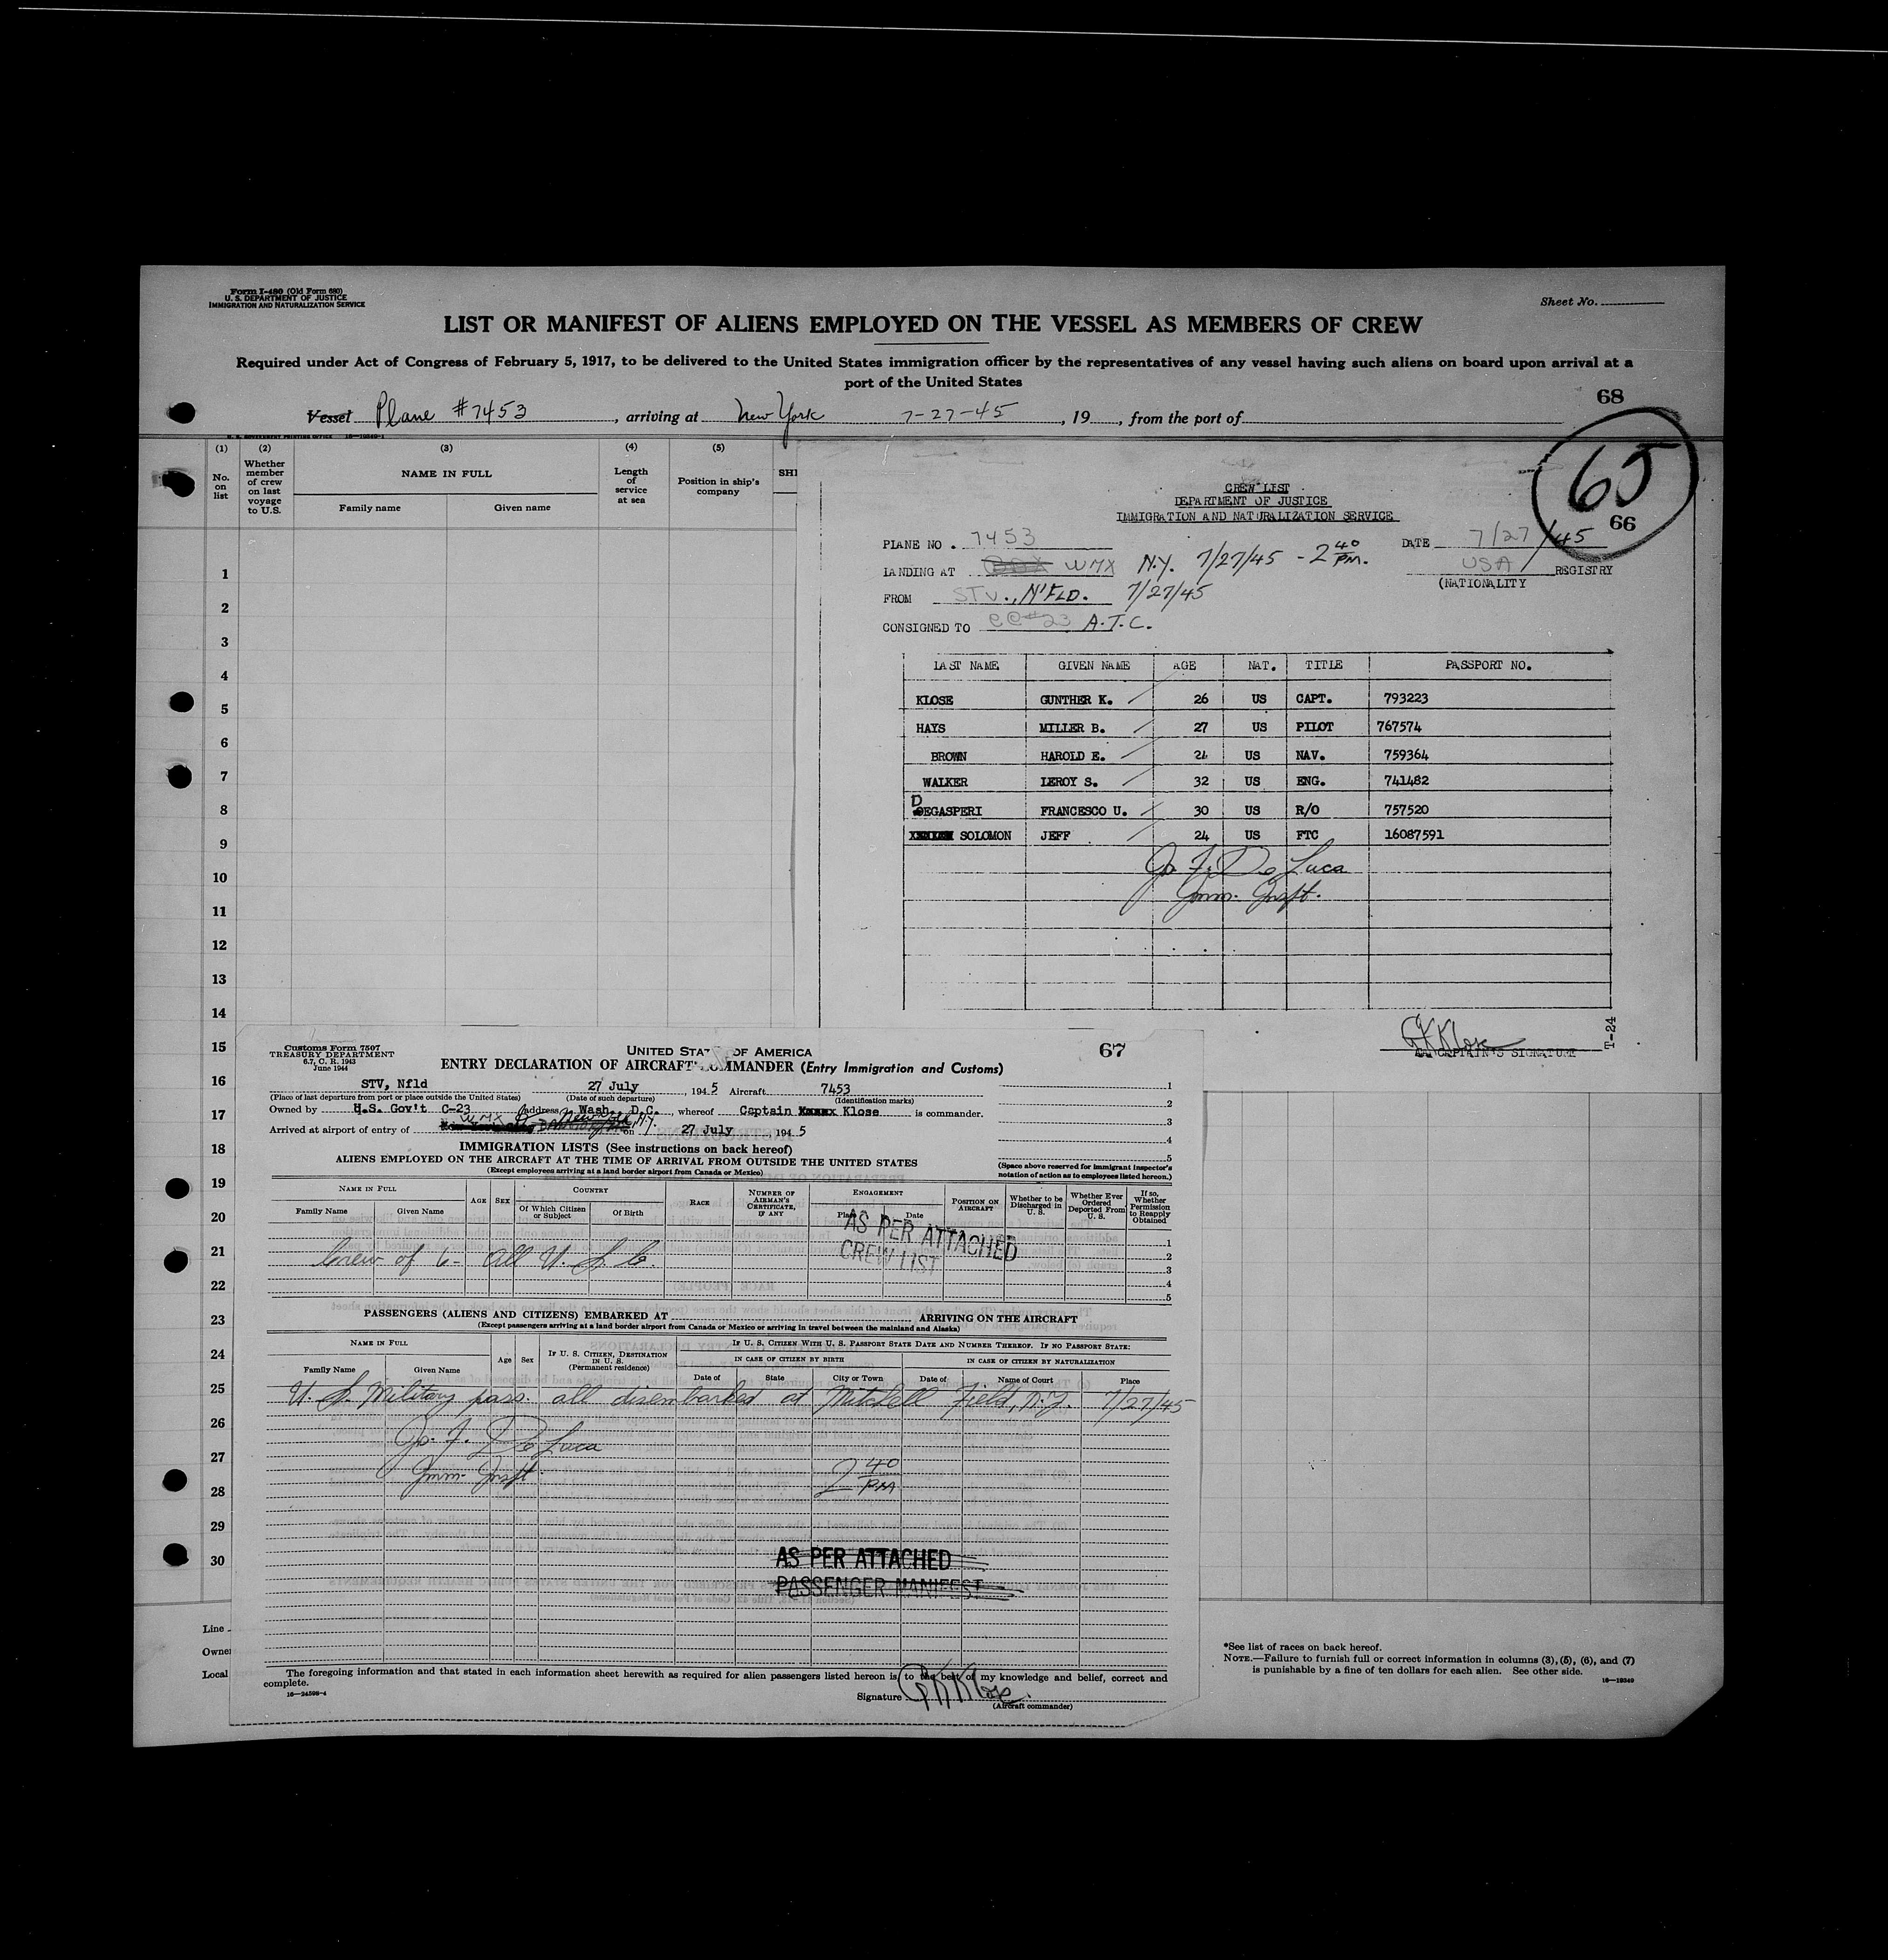 Form I-480 (Old Form 680)
U. S. DEPARTMENT OF JUSTICE
IMMIGRATION AND NATURALIZATION SERVICE
Sheet No.
LIST OR MANIFEST OF ALIENS EMPLOYED ON THE VESSEL AS MEMBERS OF CREW
Required under Act of Congress of February 5, 1917, to be delivered to the United States immigration officer by the representatives of any vessel having such aliens on board upon arrival at a
port of the United States
68
Vessel Plane #7453, arriving at New York 7-27-45, 19, from the port of
(1) (2) (3) (4) (5)
No. on list
Whether member of crew on last voyage to U.S.
NAME IN FULL
Family name Given name
Length of service at sea
Position in ship's company
SHI
1
2
3
4
5
6
7
8
9
10
11
12
13
14
15
16
17
18
19
20
21
22
23
24
25
26
27
28
29
30
Line
Owner
Local
65
66
CREW LIST
DEPARTMENT OF JUSTICE
IMMIGRATION AND NATURALIZATION SERVICE
PLANE NO. 7453 DATE 7/27/45
LANDING AT WMX N.Y. 7/27/45 - 2 40 PM. USA REGISTRY
(NATIONALITY
FROM STV., N'FLD. 7/27/45
CONSIGNED TO CC#23 A.T.C.
LAST NAME GIVEN NAME AGE NAT. TITLE PASSPORT NO.
KLOSE GUNTHER K. 26 US CAPT. 793223
HAYS MILLER B. 27 US PILOT 767574
BROWN HAROLD E. 24 US NAV. 759364
WALKER LEROY S. 32 US ENG. 741482
DEGASPERI FRANCESCO U. 30 US R/O 757520
SOLOMON JEFF 24 US FTC 16087591
Jo. F. De Luca
Imm. Inspt.
GKKlose
CAPTAIN'S SIGNATURE
T-24
Customs Form 7507
TREASURY DEPARTMENT
6.7, C. R. 1943
June 1944
UNITED STA OF AMERICA
67
ENTRY DECLARATION OF AIRCRAFT COMMANDER (Entry Immigration and Customs)
STV, Nfld 27 July, 1945 Aircraft 7453
(Place of last departure from port or place outside the United States) (Date of such departure) (Identification marks)
Owned by U.S. Gov't C-23 address Wash. D.C., whereof Captain Klose is commander.
Arrived at airport of entry of WMX New York, N.Y. on 27 July 1945
1
2
3
4
5
IMMIGRATION LISTS (See instructions on back hereof)
ALIENS EMPLOYED ON THE AIRCRAFT AT THE TIME OF ARRIVAL FROM OUTSIDE THE UNITED STATES
(Except employees arriving at a land border airport from Canada or Mexico)
(Space above reserved for immigrant inspector's notation of action as to employees listed hereon.)
NAME IN FULL
Family Name Given Name
AGE SEX
COUNTRY
Of Which Citizen or Subject Of Birth
RACE
NUMBER OF AIRMAN'S CERTIFICATE, IF ANY
ENGAGEMENT
Place Date
POSITION ON AIRCRAFT
Whether to be Discharged in U. S.
Whether Ever Ordered Deported From U. S.
If so, Whether Permission to Reapply Obtained
AS PER ATTACHED
CREW LIST
Crew of 6 - all U. S. C.
1
2
3
4
5
PASSENGERS (ALIENS AND CITIZENS) EMBARKED AT ARRIVING ON THE AIRCRAFT
(Except passengers arriving at a land border airport from Canada or Mexico or arriving in travel between the mainland and Alaska)
NAME IN FULL
Family Name Given Name
Age Sex
IF U. S. CITIZEN, DESTINATION IN U. S. (Permanent residence)
IF U. S. CITIZEN WITH U. S. PASSPORT STATE DATE AND NUMBER THEREOF. IF NO PASSPORT STATE:
IN CASE OF CITIZEN BY BIRTH IN CASE OF CITIZEN BY NATURALIZATION
Date of State City or Town Date of Name of Court Place
U. S. Military pass. all disembarked at Mitchell Field, N.Y. 7/27/45
Jo. F. De Luca
Imm. Inspt.
2 40 PM
AS PER ATTACHED
PASSENGER MANIFEST
The foregoing information and that stated in each information sheet herewith as required for alien passengers listed hereon is, to the best of my knowledge and belief, correct and
complete.
16—24598-4
Signature GKKlose
(Aircraft commander)
*See list of races on back hereof.
NOTE.—Failure to furnish full or correct information in columns (3), (5), (6), and (7)
is punishable by a fine of ten dollars for each alien. See other side.
16—19349